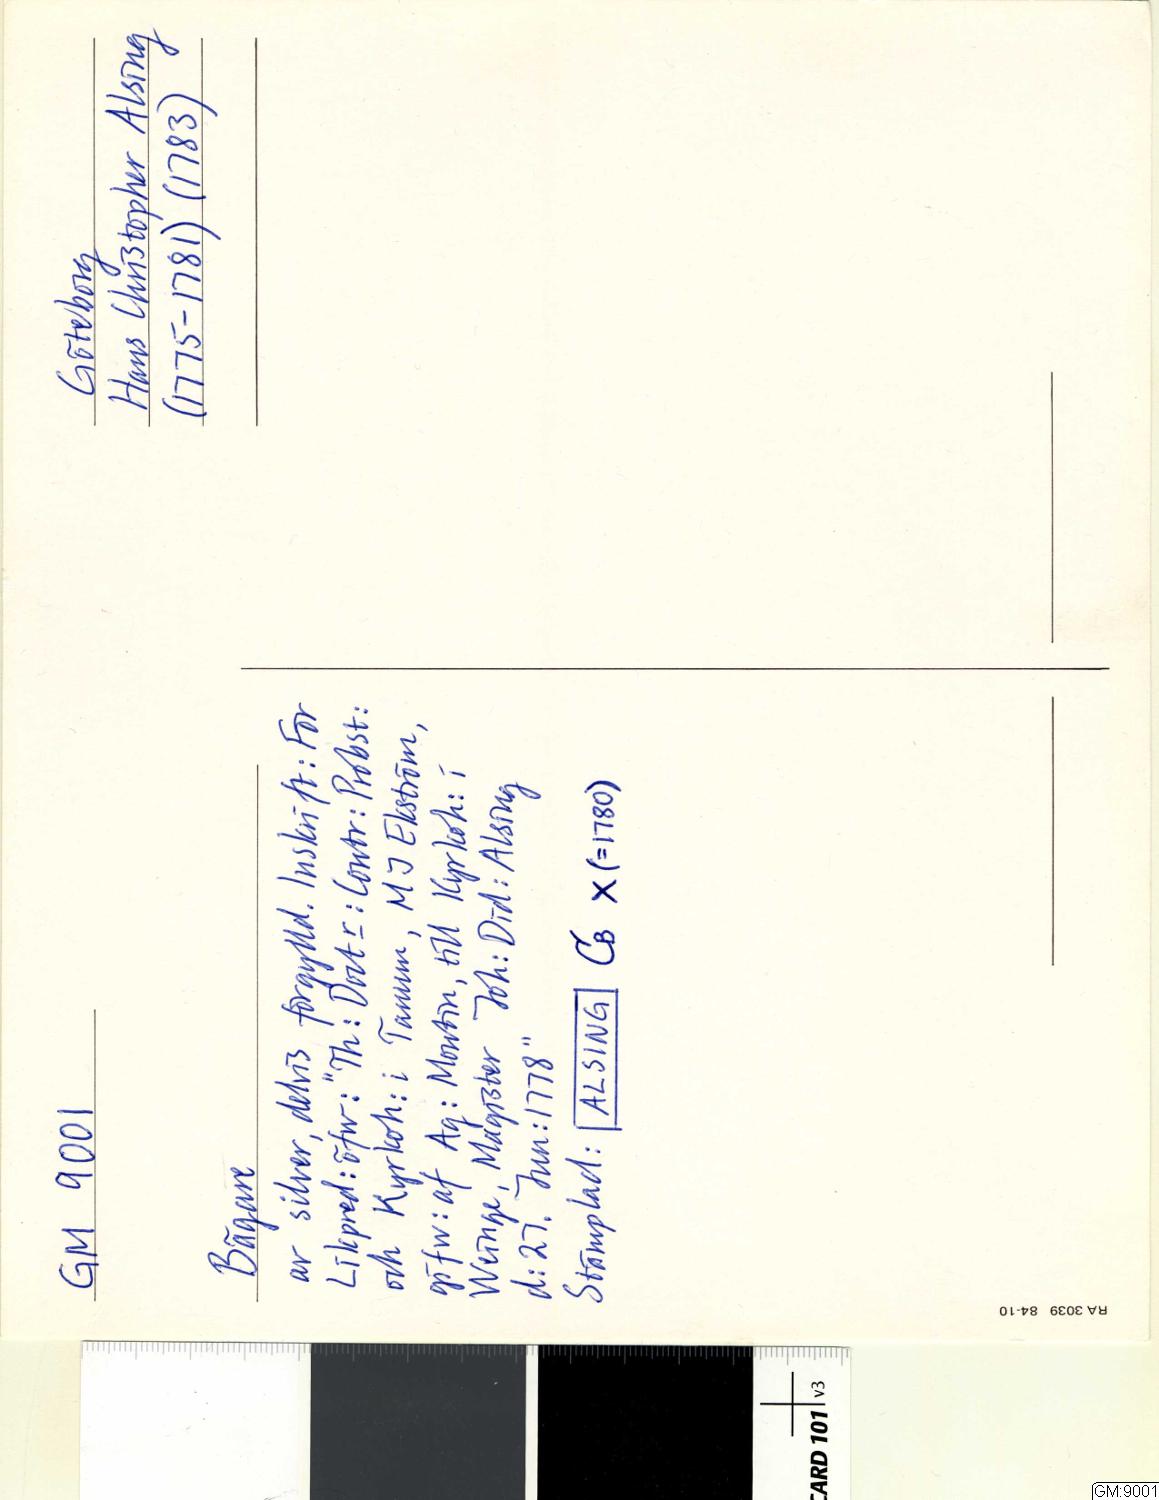 GM 9001
Göteborg
Hans Christopher Alsing
(1775-1781) (1783)
Bägare
av silver, delvis förgylld. Inskrift: För
Likpred: öfw: "Th: Doct r: Contr: Probst:
och Kyrkoh: i Tanum, M J Ekström,
gifw: af Ag: Montin, till Kyrkoh: i
Weinge, Magister Joh: Did: Alsing
d: 27. Jun: 1778"
Stämplad: ALSING CB X (=1780)
RA 3039 84-10
CARD 101 v3
GM:9001